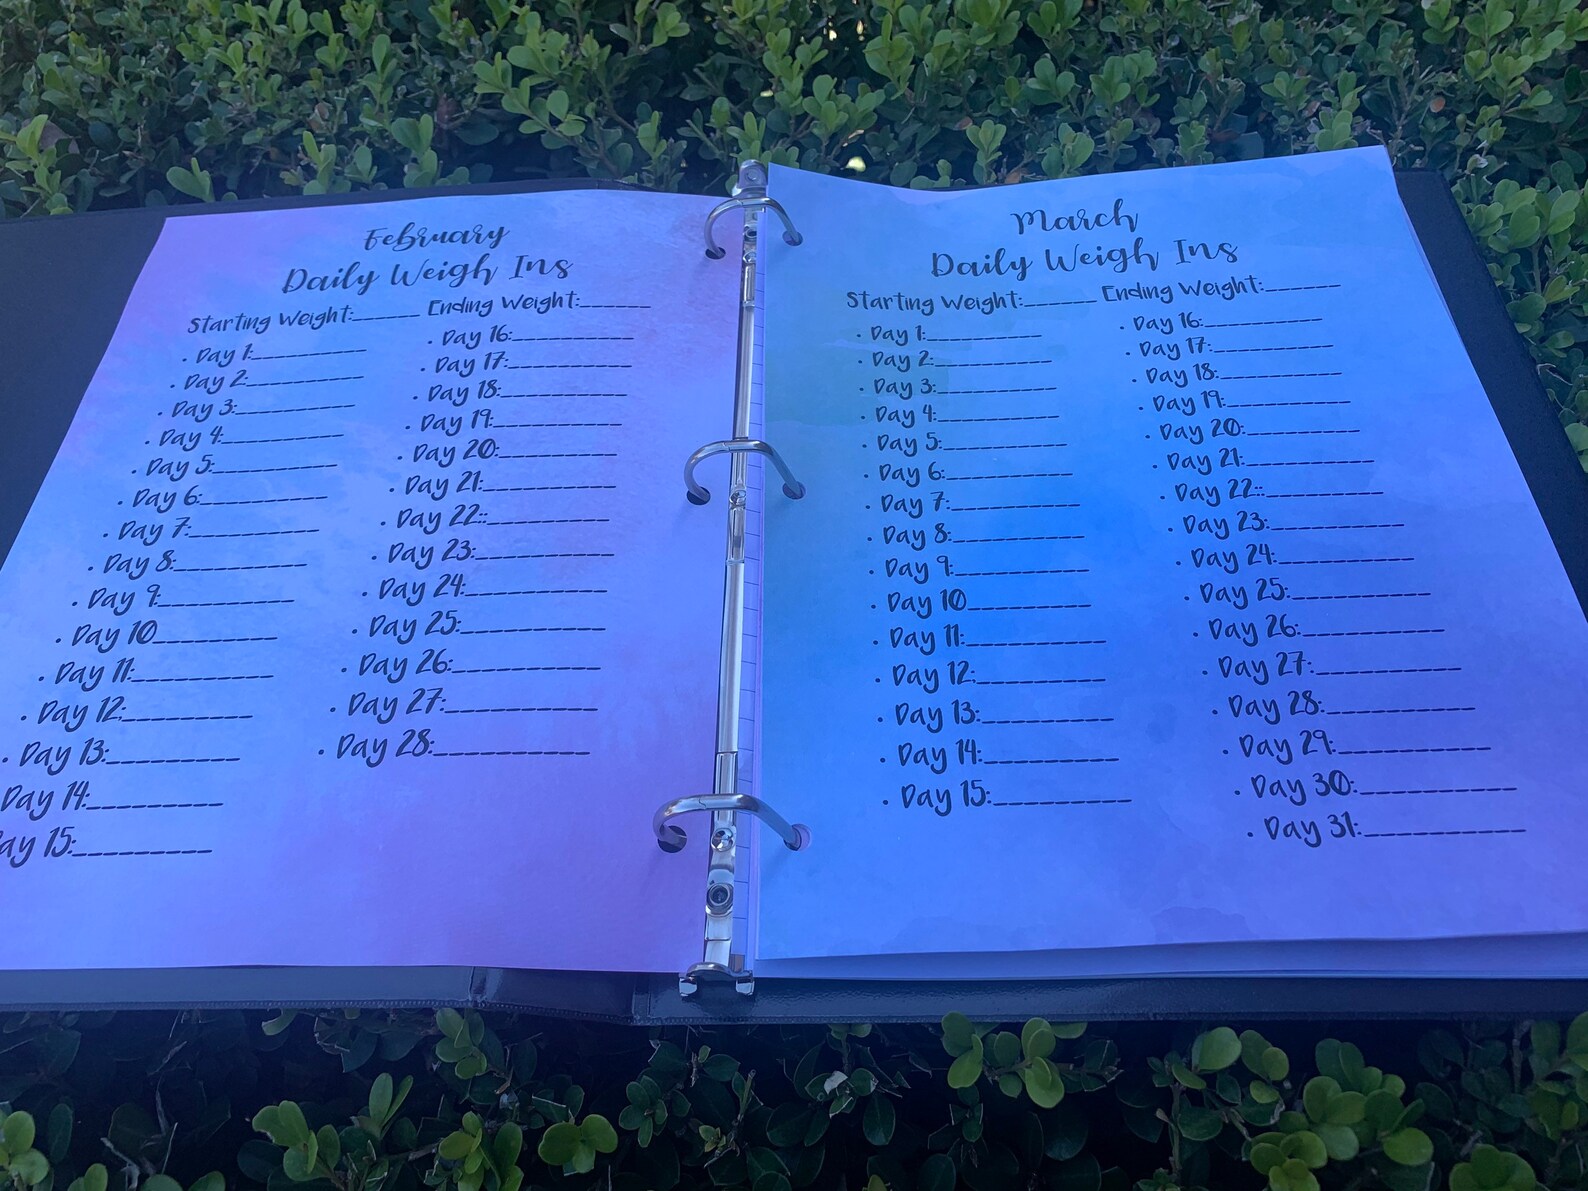 February
Daily Weigh Ins
Starting Weight:______ Ending Weight:______
• Day 1:__________
• Day 2:__________
• Day 3:__________
• Day 4:__________
• Day 5:__________
• Day 6:__________
• Day 7:__________
• Day 8:__________
• Day 9:__________
• Day 10__________
• Day 11:__________
• Day 12:__________
• Day 13:__________
Day 14:__________
ay 15:__________
• Day 16:__________
• Day 17:__________
• Day 18:__________
• Day 19:__________
• Day 20:__________
• Day 21:__________
• Day 22::__________
• Day 23:__________
• Day 24:__________
• Day 25:__________
• Day 26:__________
• Day 27:__________
• Day 28:__________
March
Daily Weigh Ins
Starting Weight:______ Ending Weight:______
• Day 1:__________
• Day 2:__________
• Day 3:__________
• Day 4:__________
• Day 5:__________
• Day 6:__________
• Day 7:__________
• Day 8:__________
• Day 9:__________
• Day 10__________
• Day 11:__________
• Day 12:__________
• Day 13:__________
• Day 14:__________
• Day 15:__________
• Day 16:__________
• Day 17:__________
• Day 18:__________
• Day 19:__________
• Day 20:__________
• Day 21:__________
• Day 22::__________
• Day 23:__________
• Day 24:__________
• Day 25:__________
• Day 26:__________
• Day 27:__________
• Day 28:__________
• Day 29:__________
• Day 30:__________
• Day 31:__________